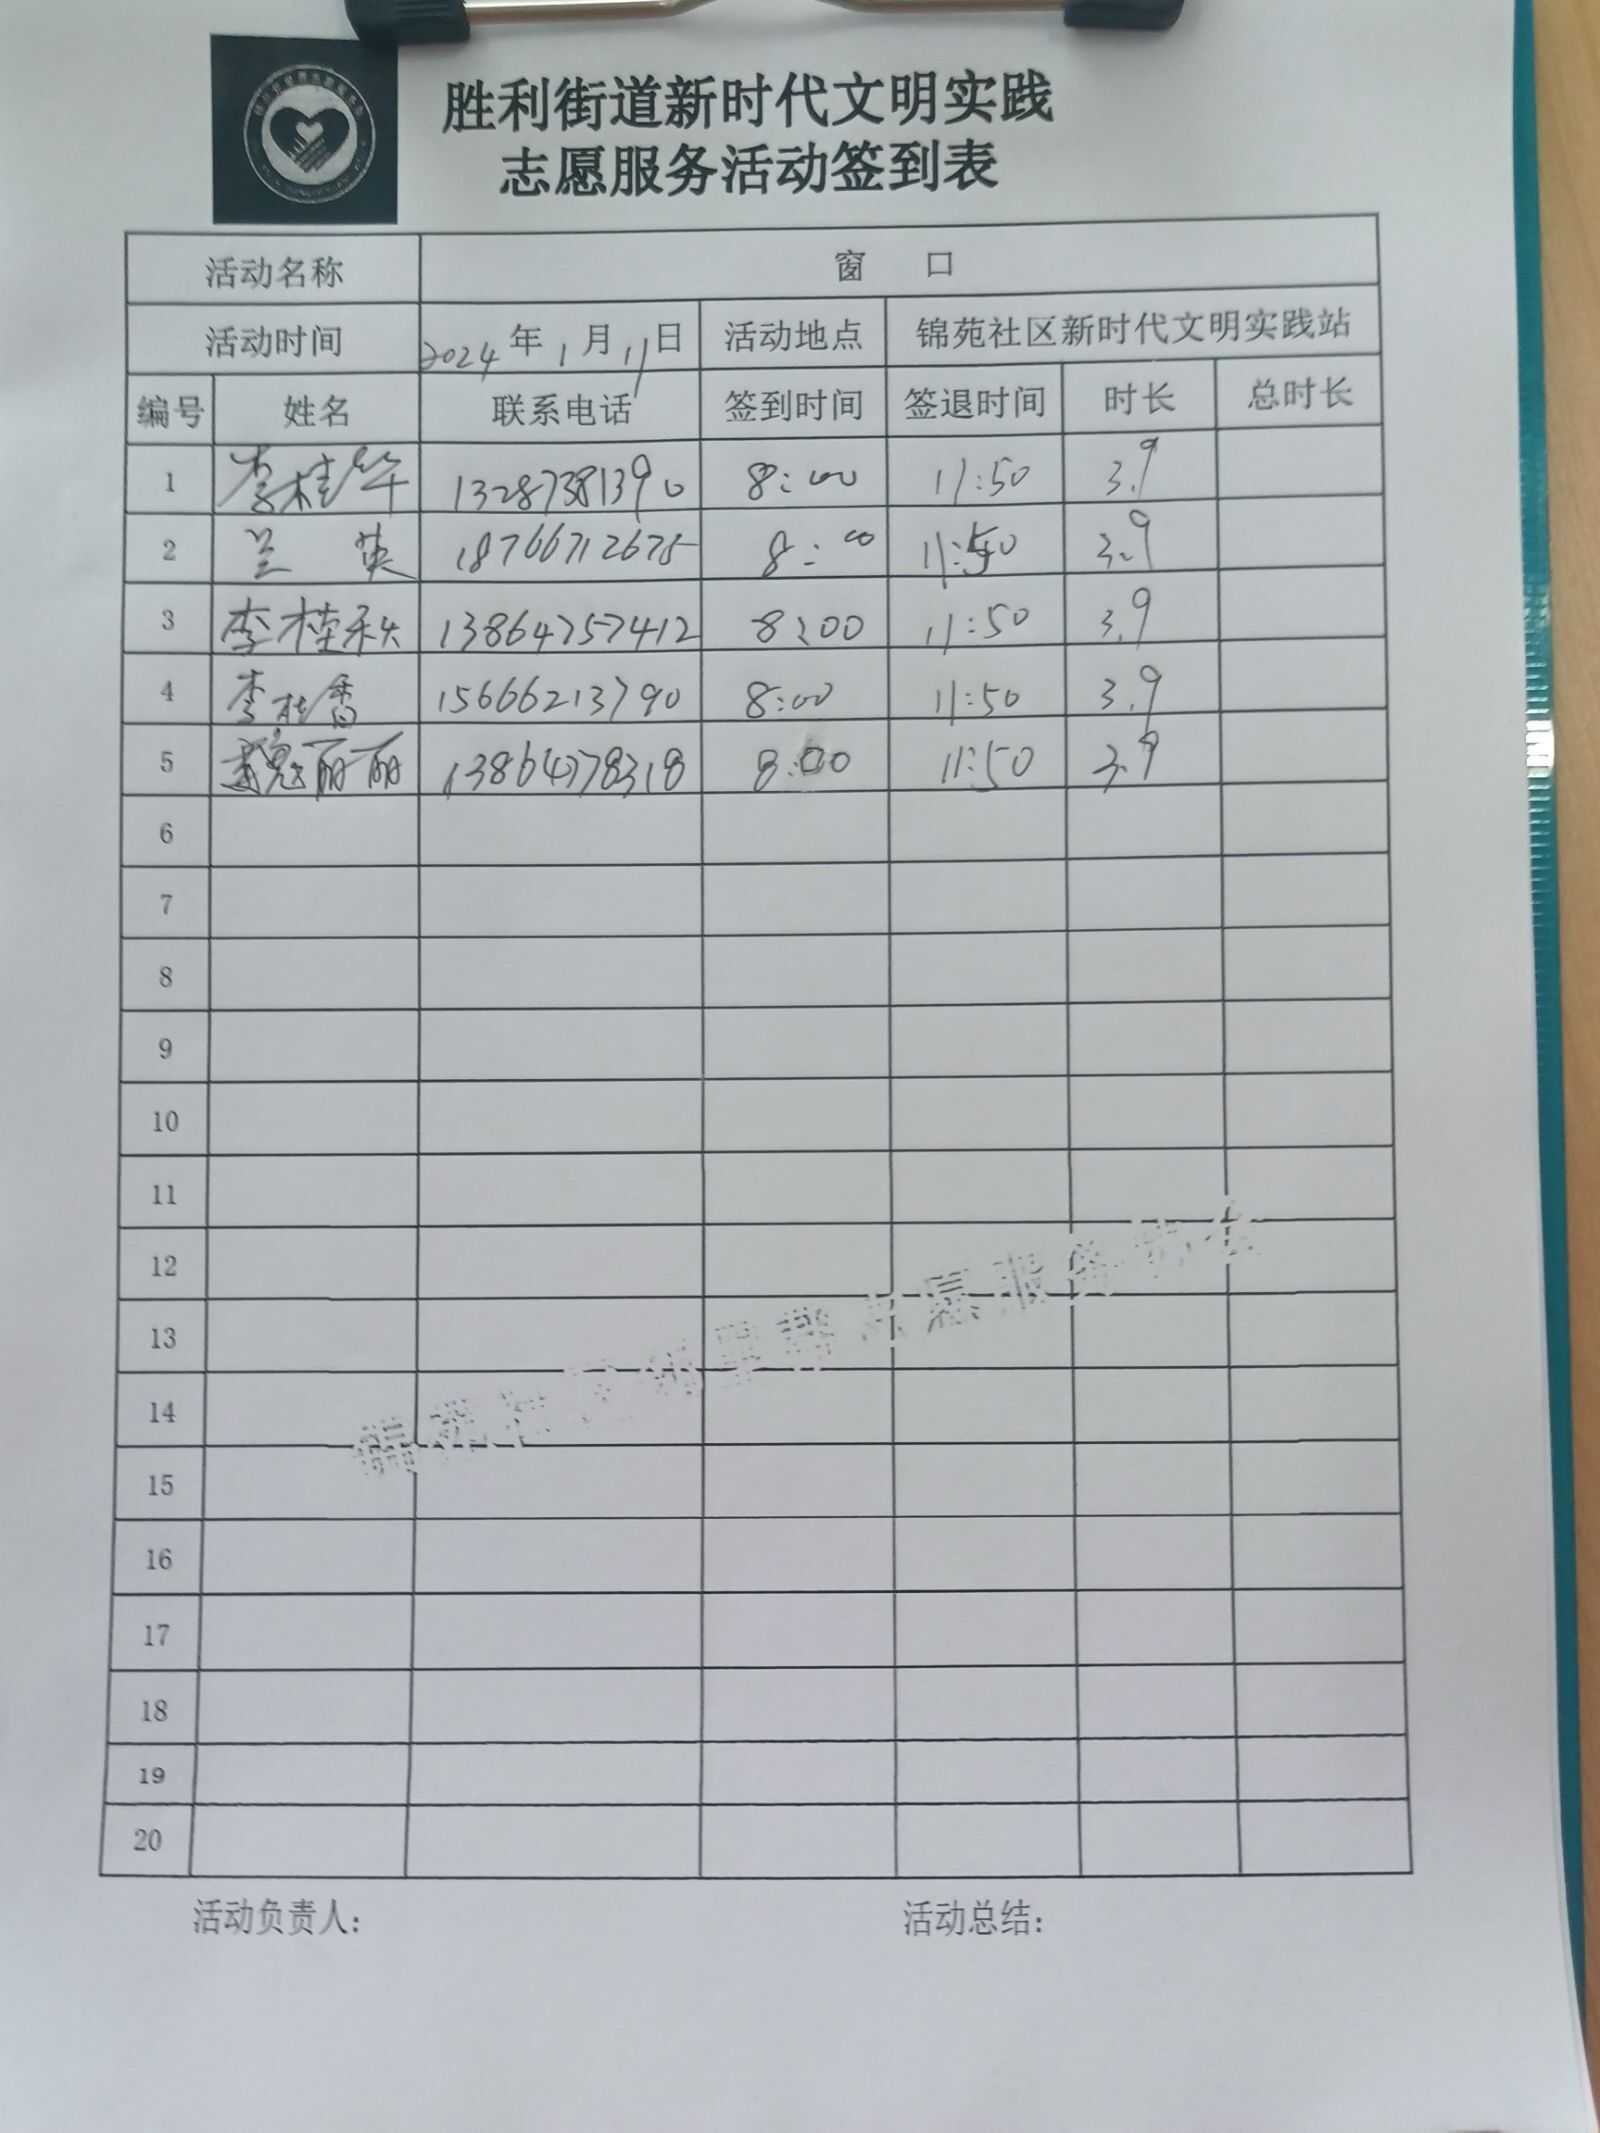 胜利街道新时代文明实践
志愿服务活动签到表
活动名称 窗 口
活动时间 2024年1月11日 活动地点 锦苑社区新时代文明实践站
编号 姓名 联系电话 签到时间 签退时间 时长 总时长
1 李桂华 13287381390 8:00 11:50 3.9
2 兰英 18766712675 8:00 11:50 3.9
3 李桂秋 13864757412 8:00 11:50 3.9
4 李桂香 15666213790 8:00 11:50 3.9
5 魏丽丽 13864778318 8:00 11:50 3.9
6
7
8
9
10
11
12
13
14
15
16
17
18
19
20
活动负责人: 活动总结: